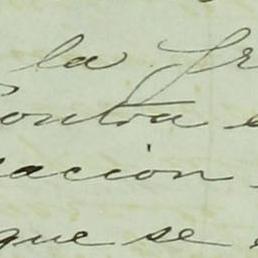 la
contra
acion
que se